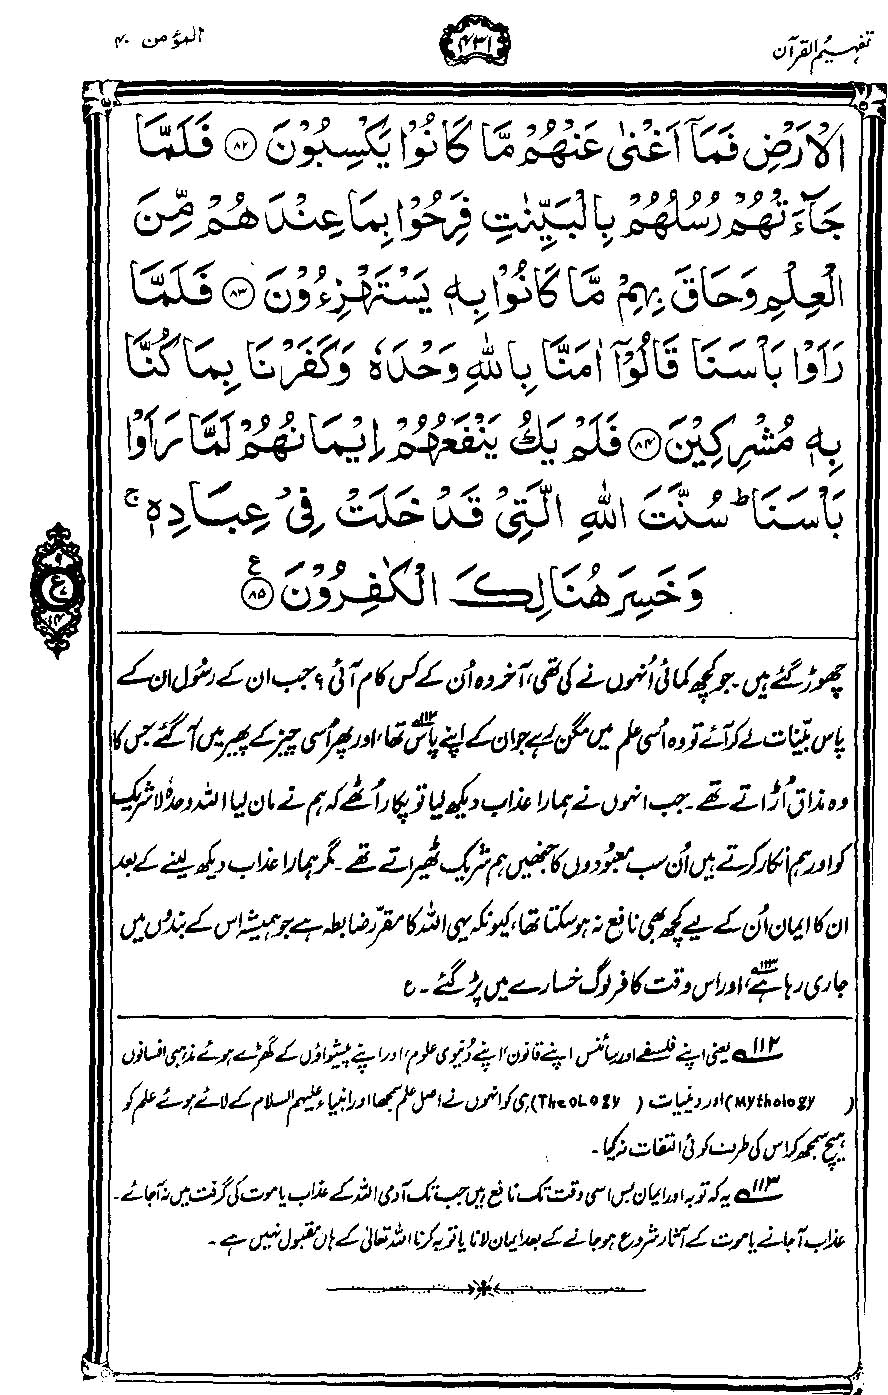 تفہیم القرآن
۴۳۱
المؤمن ۴۰
الْاَرْضِ فَمَآ اَغْنٰى عَنْهُمْ مَّا كَانُوْا يَكْسِبُوْنَ ﴿۸۲﴾ فَلَمَّا
جَآءَتْهُمْ رُسُلُهُمْ بِالْبَيِّنٰتِ فَرِحُوْا بِمَا عِنْدَهُمْ مِّنَ
الْعِلْمِ وَحَاقَ بِهِمْ مَّا كَانُوْا بِهٖ يَسْتَهْزِءُوْنَ ﴿۸۳﴾ فَلَمَّا
رَاَوْا بَاْسَنَا قَالُوْٓا اٰمَنَّا بِاللّٰهِ وَحْدَهٗ وَكَفَرْنَا بِمَا كُنَّا
بِهٖ مُشْرِكِيْنَ ﴿۸۴﴾ فَلَمْ يَكُ يَنْفَعُهُمْ اِيْمَانُهُمْ لَمَّا رَاَوْا
بَاْسَنَا ؕ سُنَّتَ اللّٰهِ الَّتِيْ قَدْ خَلَتْ فِيْ عِبَادِهٖ ۚ
وَخَسِرَ هُنَالِكَ الْكٰفِرُوْنَ ﴿۸۵﴾ ع
۹
ع
۱۴
چھوڑ گئے ہیں۔ جو کچھ کمائی اُنہوں نے کی تھی، آخر وہ اُن کے کس کام آئی؟ جب ان کے رسُول ان کے
پاس بیّنات لے کر آئے تو وہ اُسی علم میں مگن رہے جو ان کے اپنے پاس تھا،۱۱۲ اور پھر اُسی چیز کے پھیر میں آ گئے جس کا
وہ مذاق اُڑاتے تھے۔ جب انہوں نے ہمارا عذاب دیکھ لیا تو پکار اُٹھے کہ ہم نے مان لیا اللہ وحدہٗ لاشریک
کو اور ہم انکار کرتے ہیں اُن سب معبُودوں کا جنھیں ہم شریک ٹھیراتے تھے۔ مگر ہمارا عذاب دیکھ لینے کے بعد
ان کا ایمان اُن کے لیے کچھ بھی نافع نہ ہو سکتا تھا، کیونکہ یہی اللہ کا مقرّر ضابطہ ہے جو ہمیشہ اس کے بندوں میں
جاری رہا ہے،۱۱۳ اور اس وقت کافر لوگ خسارے میں پڑ گئے۔ ع
۱۱۲ یعنی اپنے فلسفے اور سائنس، اپنے قانون، اپنے دُنیوی علوم، اور اپنے پیشواؤں کے گھڑے ہوئے مذہبی افسانوں
(Mythology) اور دینیات (Theology) ہی کو انہوں نے اصل علم سمجھا اور انبیاء علیہم السلام کے لائے ہوئے علم کو
ہیچ سمجھ کر اس کی طرف کوئی التفات نہ کیا۔
۱۱۳ یہ کہ توبہ اور ایمان بس اسی وقت تک نافع ہیں جب تک آدمی اللہ کے عذاب یا موت کی گرفت میں نہ آجائے۔
عذاب آجانے یا موت کے آثار شروع ہو جانے کے بعد ایمان لانا یا توبہ کرنا اللہ تعالیٰ کے ہاں مقبول نہیں ہے۔